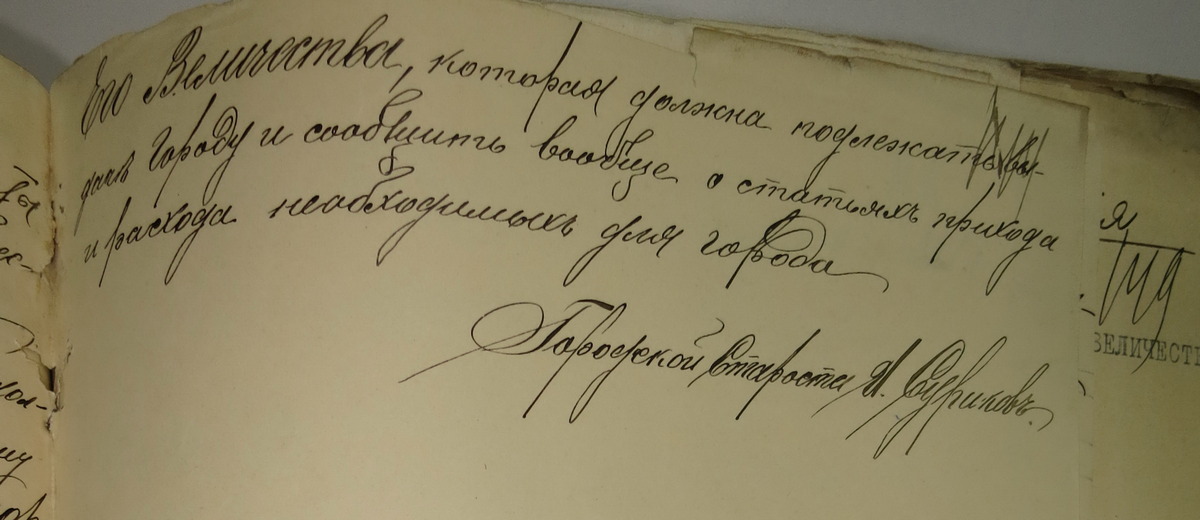 Его Величества, которая должна подлежать вы-
дачѣ городу и сообщить вообще о статьяхъ прихода
и расхода необходимыхъ для города
Городской Староста А. Суриковъ.
я
ВЕЛИЧЕСТ